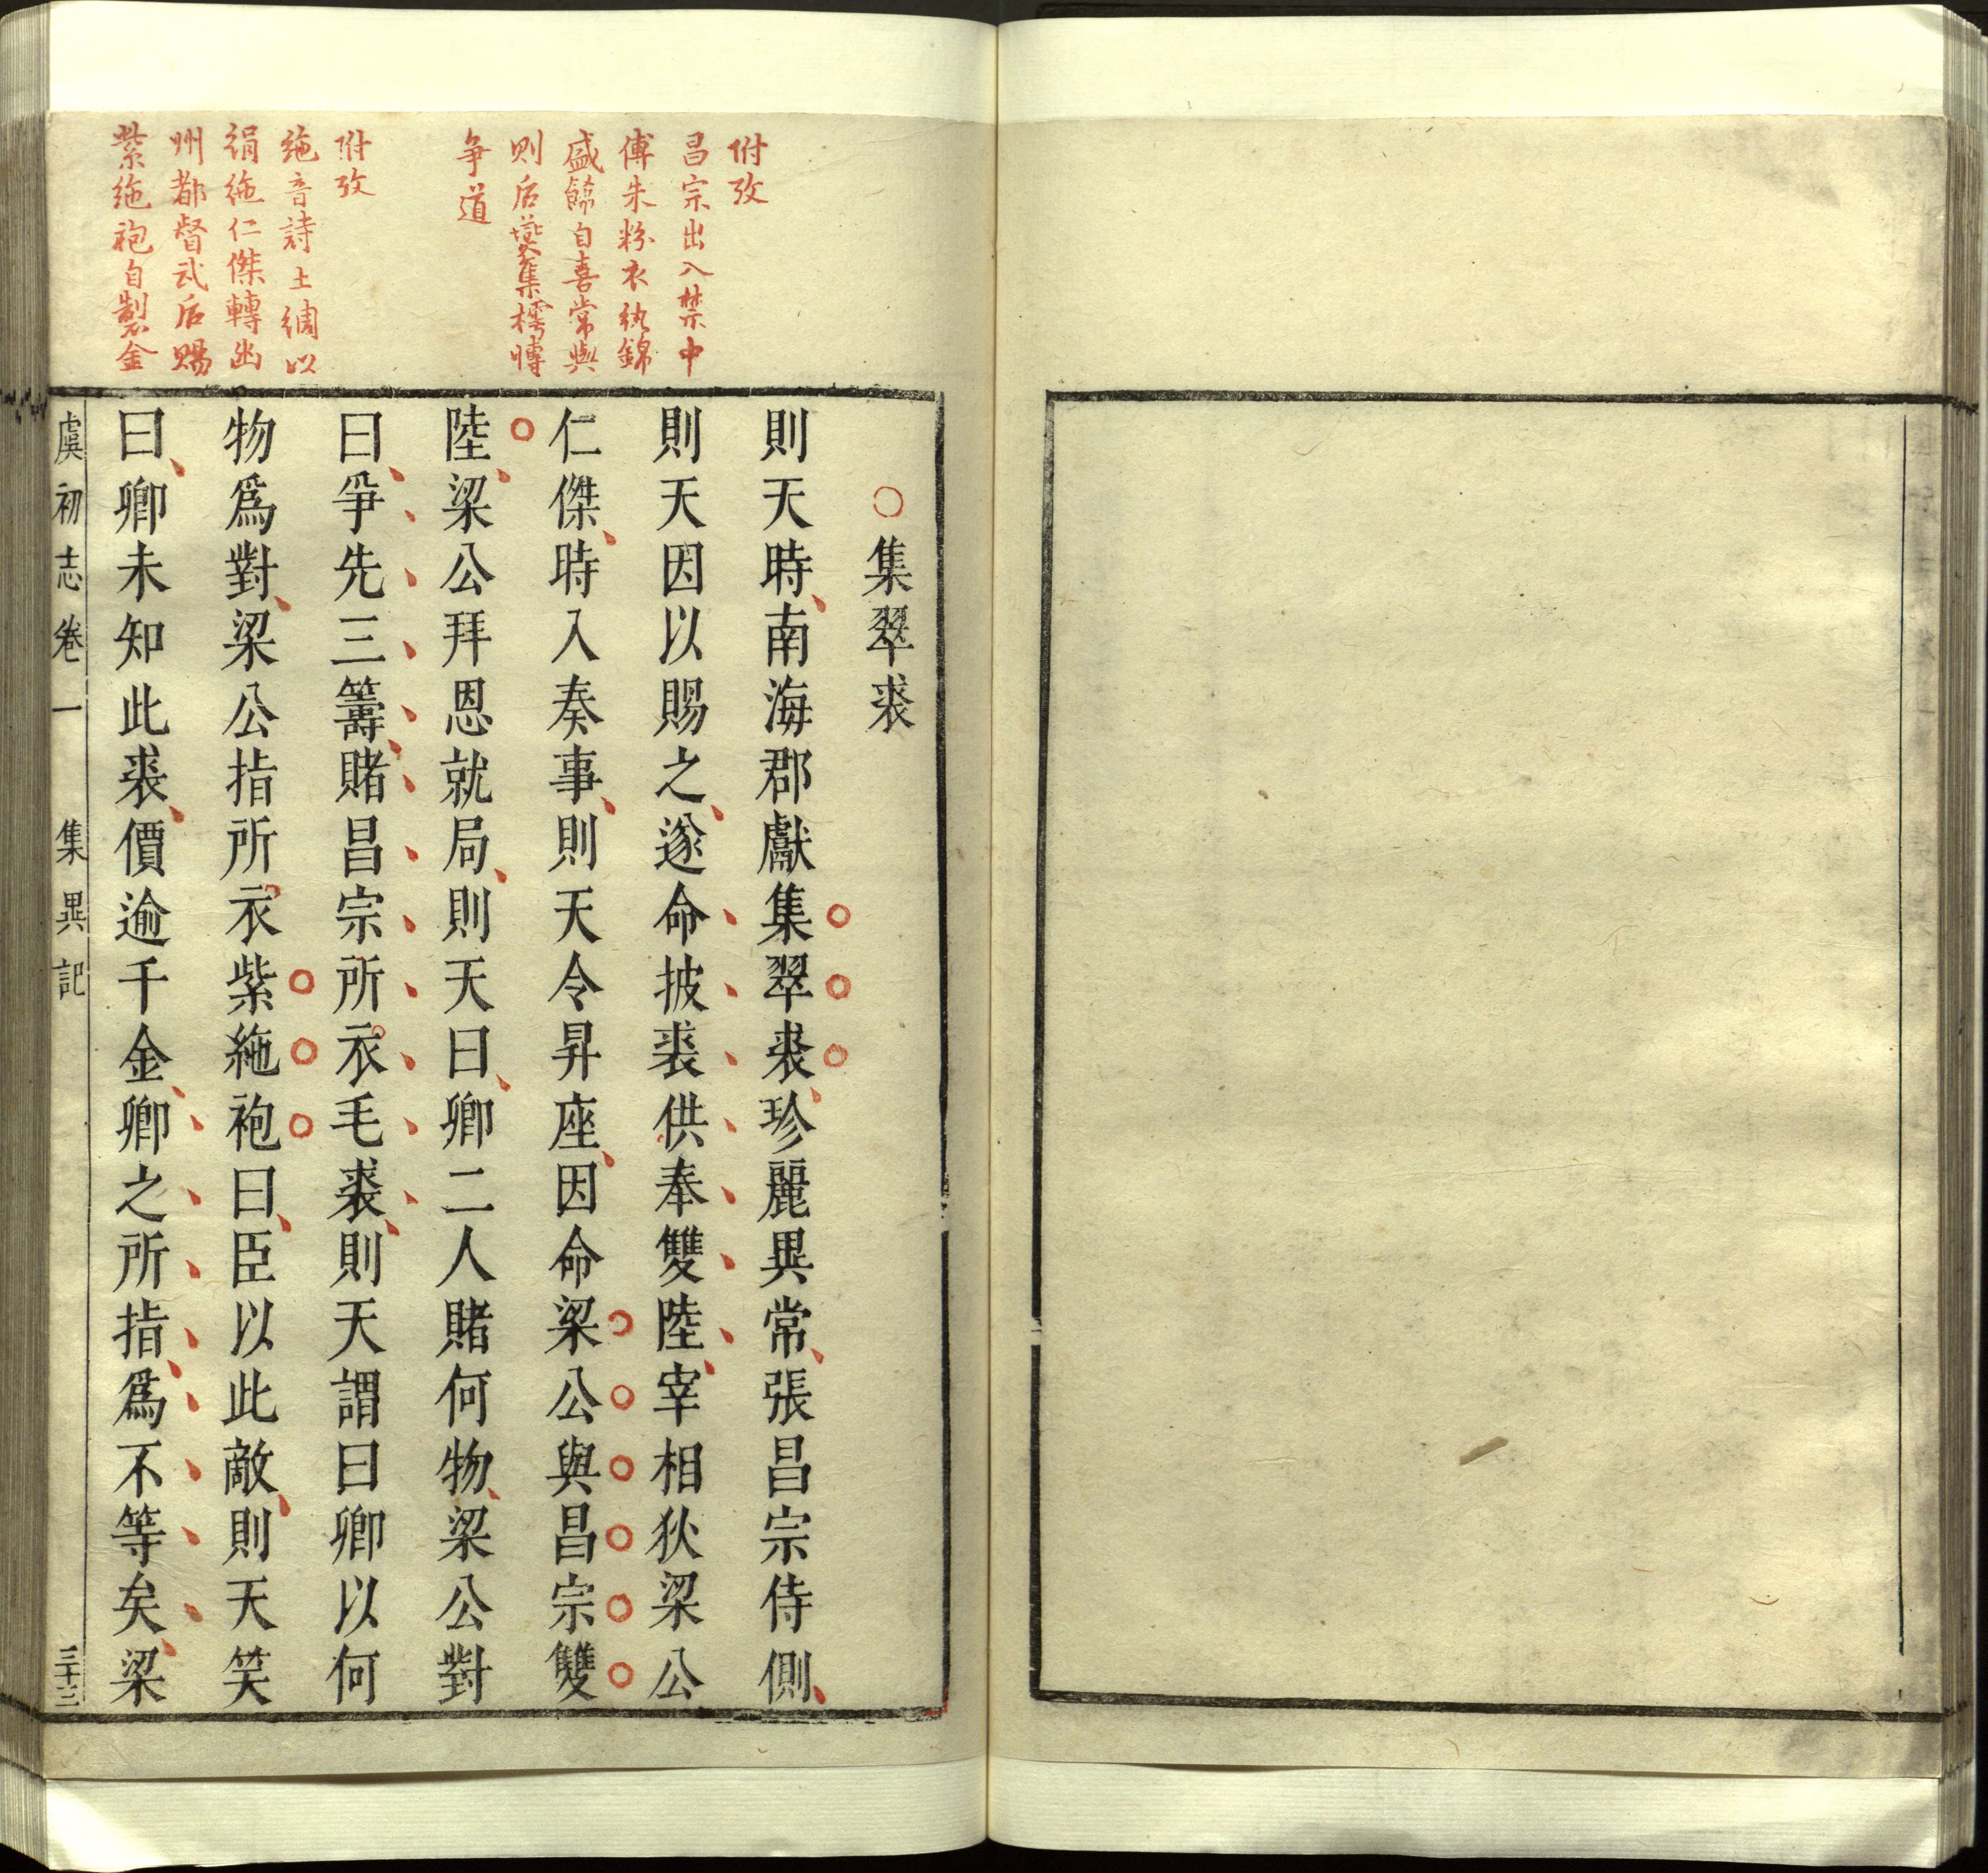 附攷
昌宗出入禁中
傅朱粉衣紈錦
盛餙自喜常與
则后集樗愽
争道
附攷
絁音詩土綢以
絹絁仁傑轉幽
州都督武后賜
紫絁袍自製金
○集翠裘
則天時南海郡獻集翠裘珍麗異常張昌宗侍側
則天因以賜之遂命披裘供奉雙陸宰相狄梁公
仁傑時入奏事則天令昇座因命梁公與昌宗雙
陸梁公拜恩就局則天曰卿二人賭何物梁公對
曰爭先三籌賭昌宗所衣毛裘則天謂曰卿以何
物爲對梁公指所衣紫絁袍曰臣以此敵則天笑
曰卿未知此裘價逾千金卿之所指爲不等矣梁
虞初志卷一 集異記 三十三